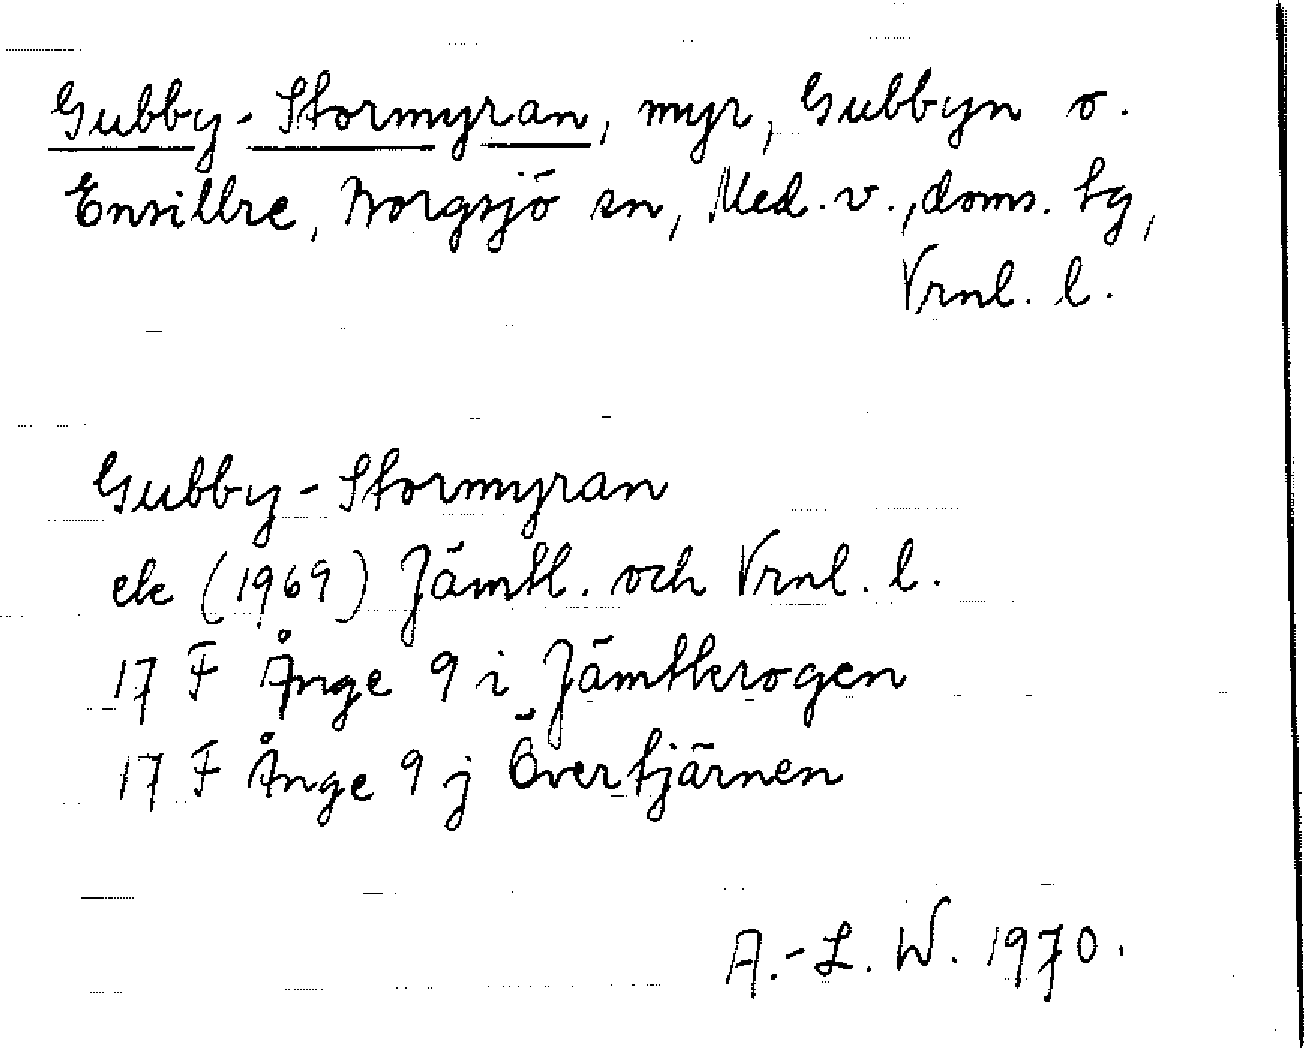 Gubby-Stormyran, myr, Gubbyn o.
Ensillre, Borgsjö sn, Med. v., doms. tg,
Vrnl. l.
Gubby-Stormyran
ek (1969) Jämtl. och Vrnl. l.
17 F Ånge 9 i Jämtkrogen
17 F Ånge 9 j Övertjärnen
A.-L. W. 1970.